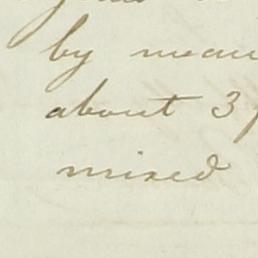 by mean
about 3
mixed